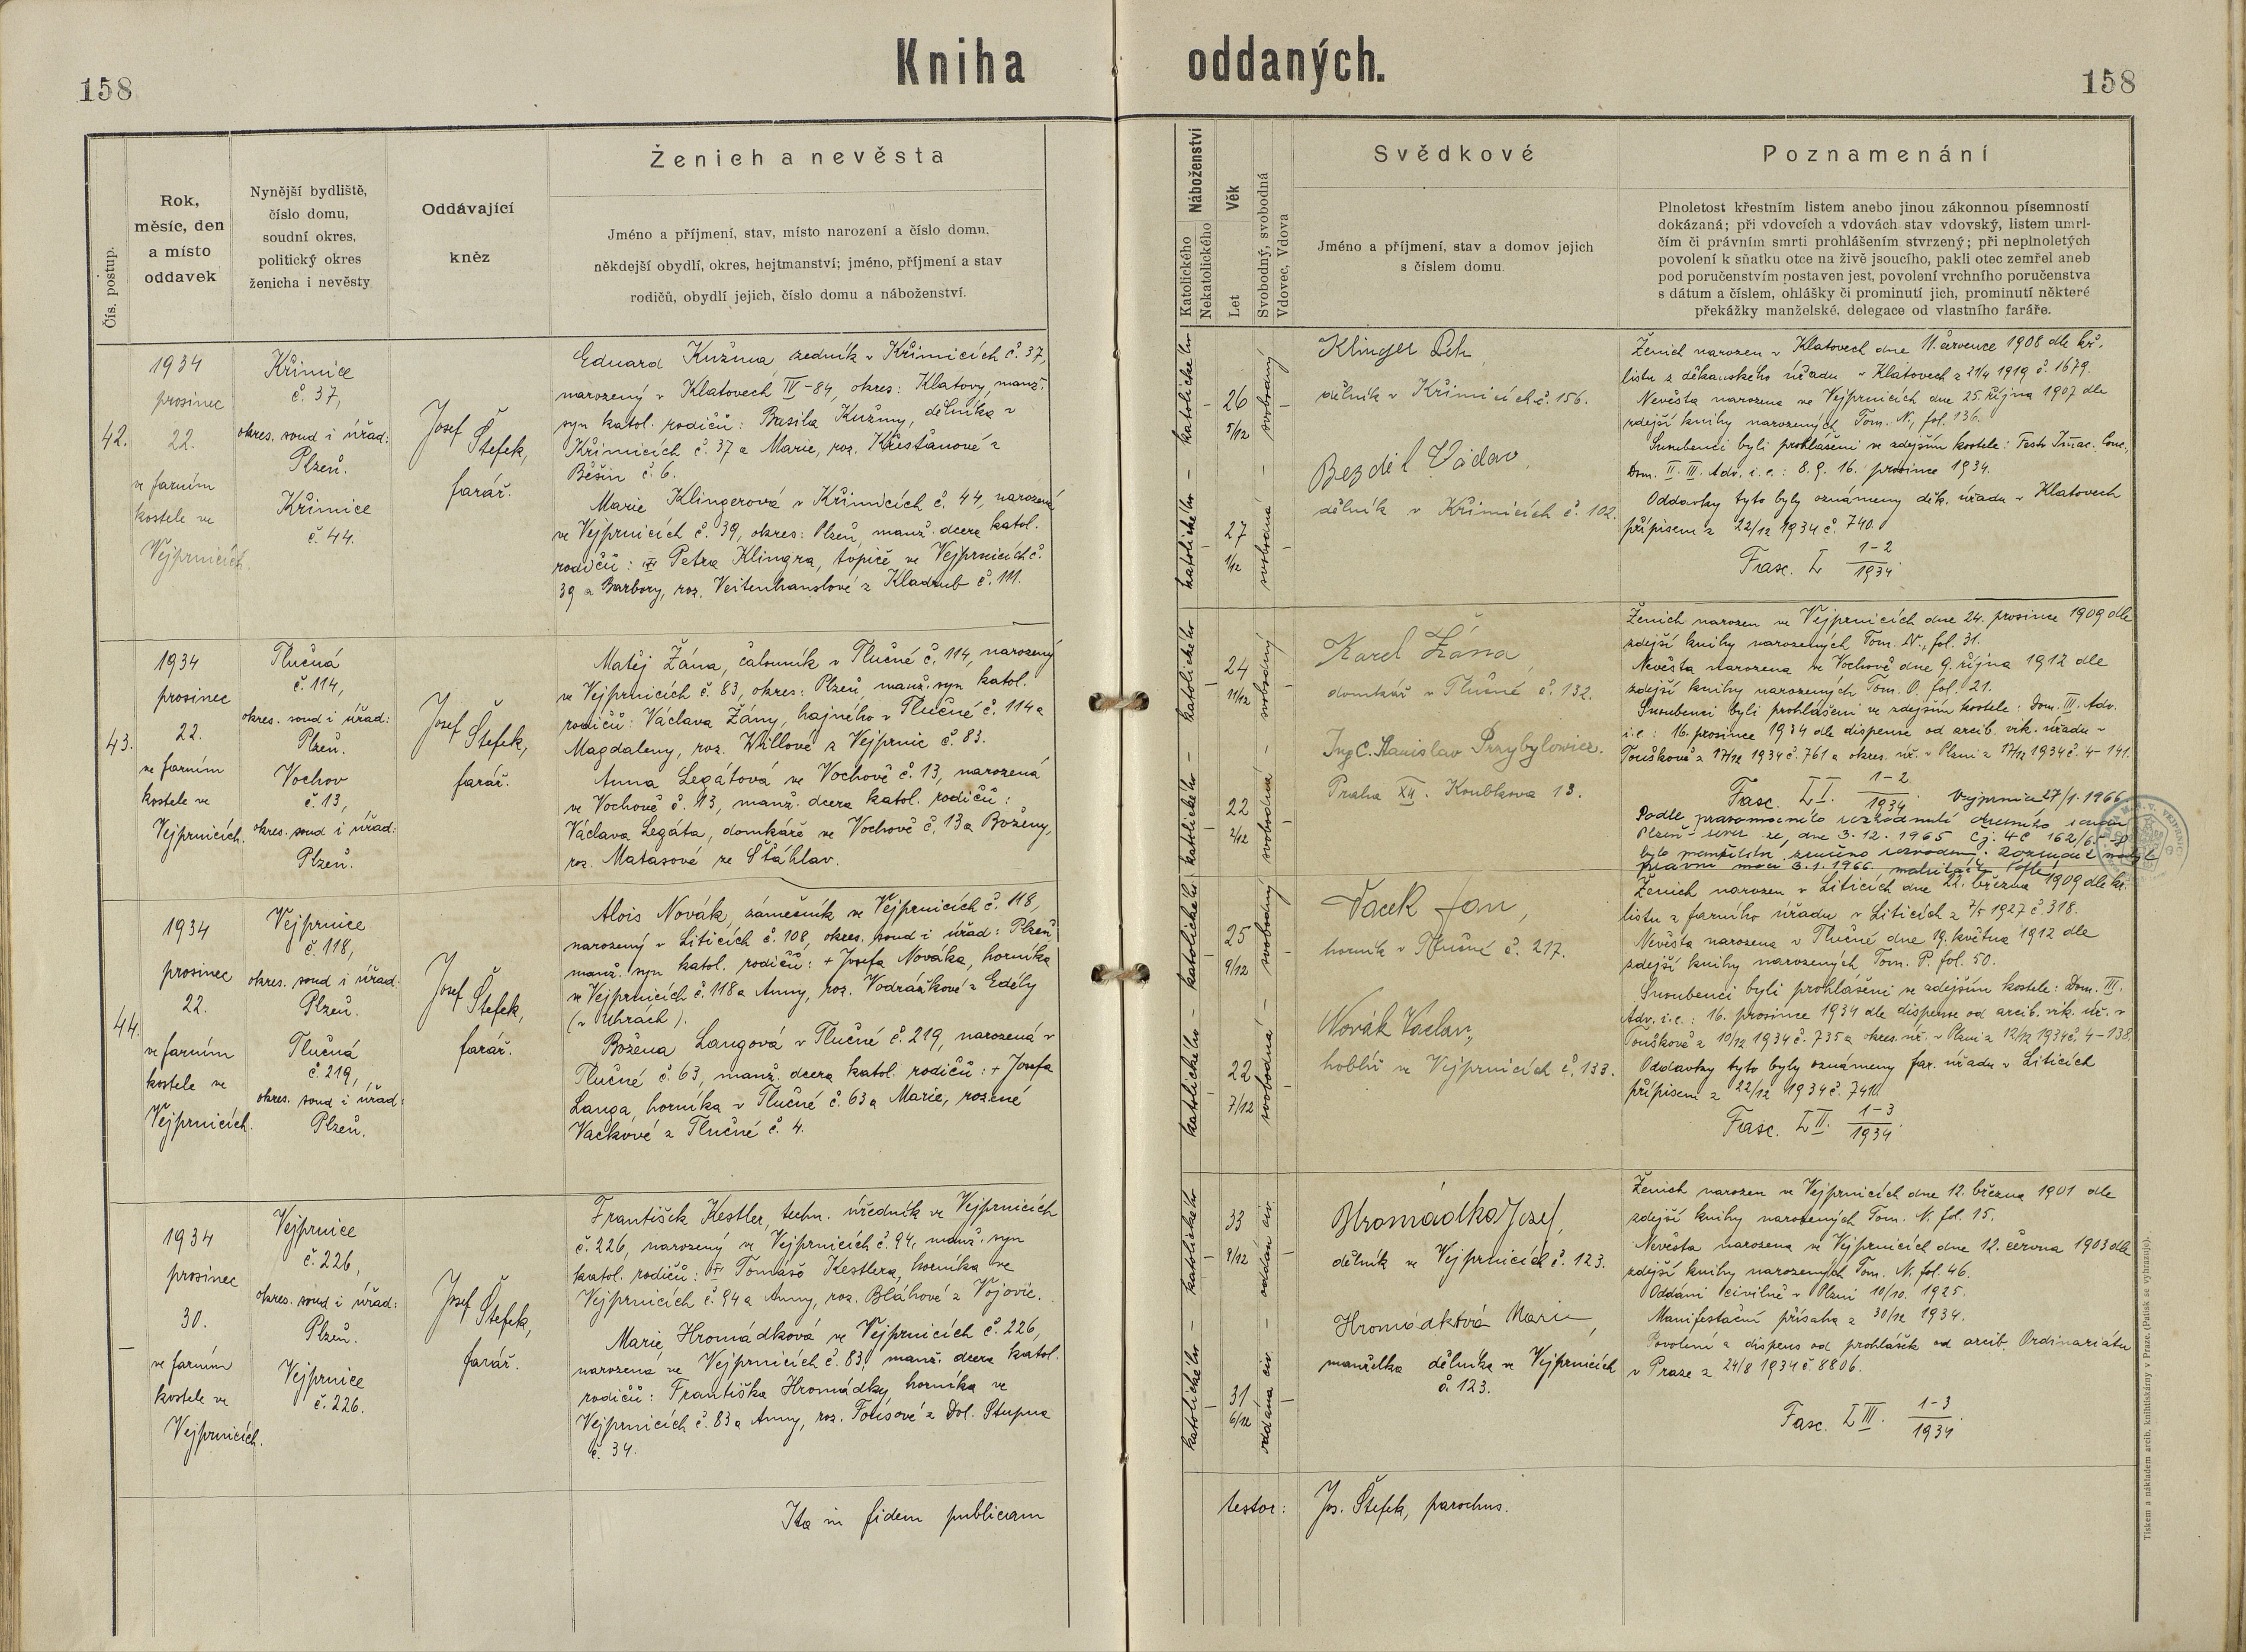 158
Kniha oddaných.
158
Čís. postup.
Rok,
měsíc, den
a místo
oddavek
Nynější bydliště,
číslo domu,
soudní okres,
politický okres
ženicha i nevěsty
Oddávající
kněz
Ženich a nevěsta
Jméno a příjmení, stav, místo narození a číslo domu,
někdejší obydlí, okres, hejtmanství; jméno, příjmení a stav
rodičů, obydlí jejich, číslo domu a náboženství.
Náboženství
Katolického
Nekatolického
Věk
Let
Svobodný, svobodná
Vdovec, Vdova
Svědkové
Jméno a příjmení, stav a domov jejich
s číslem domu
Poznamenání
Plnoletost křestním listem anebo jinou zákonnou písemností
dokázaná; při vdovcích a vdovách stav vdovský, listem umrl-
čím či právním smrti prohlášením stvrzený; při neplnoletých
povolení k sňatku otce na živě jsoucího, pakli otec zemřel aneb
pod poručenstvím postaven jest, povolení vrchního poručenstva
s dátum a číslem, ohlášky či prominutí jich, prominutí některé
překážky manželské, delegace od vlastního faráře.
42.
1934
prosinec
22.
ve farním
kostele ve
Vejprnicích.
Křimice
č. 37,
okres. soud i úřad:
Plzeň.
Křimice
č. 44.
Josef
Štefek,
farář.
Eduard Kužma, zedník v Křimicích č. 37,
narozený v Klatovech IV-84, okres: Klatovy, manž.
syn katol. rodičů: Basila Kužmy, dělníka v
Křimicích č. 37 a Marie, roz. Křesťanové z
Běšin č. 6.
Marie Klingerová v Křimicích č. 44, narozená
ve Vejprnicích č. 39, okres: Plzeň, manž. dcera katol.
rodičů: Petra Klingra, topiče ve Vejprnicích č.
39 a Barbory, roz. Veitenhanslové z Kladrub č. 111.
katolického – katolického –
26
5/12
27
1/12
svobodný – svobodná –
Klinger Petr,
dělník v Křimicích č. 156.
Bezděl Václav,
dělník v Křimicích č. 102.
Ženich narozen v Klatovech dne 11. července 1908 dle kř.
listu z děkanského úřadu v Klatovech z 21/4 1919 č. 1679.
Nevěsta narozena ve Vejprnicích dne 25. října 1907 dle
zdejší knihy narozených Tom. N, fol. 136.
Snoubenci byli prohlášeni ve zdejším kostele: Festo Imac. Conc.,
Dom. II. III. Adv. i.e.: 8. 9. 16. prosince 1934.
Oddavky tyto byly oznámeny děk. úřadu v Klatovech
přípisem z 22/12 1934 č. 740.
Fasc. L 1-2
1934.
43.
1934
prosinec
22.
ve farním
kostele ve
Vejprnicích.
Tlučná
č. 114,
okres. soud i úřad:
Plzeň.
Vochov
č. 13,
okres. soud i úřad:
Plzeň.
Josef
Štefek,
farář.
Matěj Žána, čalouník v Tlučné č. 114, narozený
ve Vejprnicích č. 83, okres: Plzeň, manž. syn katol.
rodičů: Václava Žány, hajného v Tlučné č. 114 a
Magdaleny, roz. Willové z Vejprnic č. 83.
Anna Legátová ve Vochově č. 13, narozená
ve Vochově č. 13, manž. dcera katol. rodičů:
Václava Legáta, domkáře ve Vochově č. 13 a Boženy,
roz. Matasové ze Šťáhlav.
katolického – katolického –
24
11/12
22
2/12
svobodný – svobodná –
Karel Žána,
domkář v Tlučné č. 132.
IngC. Stanislav Przybylowicz.
Praha XII. Koubkova 13.
Ženich narozen ve Vejprnicích dne 24. prosince 1909 dle
zdejší knihy narozených Tom. N., fol. 31.
Nevěsta narozena ve Vochově dne 9. října 1912 dle
zdejší knihy narozených Tom. O. fol. 21.
Snoubenci byli prohlášeni ve zdejším kostele: Dom. III. Adv.
i.e.: 16. prosince 1934 dle dispense od arcib. vik. úřadu v
Touškově z 17/12 1934 č. 761 a okres. úř. v Plzni z 17/12 1934 č. 4-141.
Fasc. LI. 1-2
1934.
Vejprnice 27/1. 1966
Podle pravomocného rozhodnutí okresního soudu
Plzeň-sever ze dne 3. 12. 1965 čj. 4C 162/65
bylo manželství zrušeno rozvodem. Rozsudek nabyl
právní moci 3. 1. 1966.
44.
1934
prosinec
22.
ve farním
kostele ve
Vejprnicích.
Vejprnice
č. 118,
okres. soud i úřad:
Plzeň.
Tlučná
č. 219,
okres. soud i úřad:
Plzeň.
Josef
Štefek,
farář.
Alois Novák, zámečník ve Vejprnicích č. 118,
narozený v Liticích č. 108, okres. soud i úřad: Plzeň
manž. syn katol. rodičů: + Josefa Nováka, horníka
ve Vejprnicích č. 118 a Anny, roz. Vodrážkové z Edély
(v Uhrách).
Božena Langová v Tlučné č. 219, narozená v
Tlučné č. 63, manž. dcera katol. rodičů: + Josefa
Langa, horníka v Tlučné č. 63 a Marie, rozené
Vackové z Tlučné č. 4.
katolického – katolického –
25
9/12
22
7/12
svobodný – svobodná –
Vacek Jan,
horník v Tlučné č. 217.
Novák Václav,
hoblíř ve Vejprnicích č. 133.
Ženich narozen v Liticích dne 22. března 1909 dle kř.
listu z farního úřadu v Liticích z 7/5 1927 č. 318.
Nevěsta narozena v Tlučné dne 19. května 1912 dle
zdejší knihy narozených Tom. P. fol. 50.
Snoubenci byli prohlášeni ve zdejším kostele: Dom. III.
Adv. i.e.: 16. prosince 1934 dle dispense od arcib. vik. úř. v
Touškově z 10/12 1934 č. 735 a okres. úř. v Plzni z 12/12 1934 č. 4-138.
Oddavky tyto byly oznámeny far. úřadu v Liticích
přípisem z 22/12 1934 č. 741.
Fasc. LII. 1-3
1934.
–
1934
prosinec
30.
ve farním
kostele ve
Vejprnicích.
Vejprnice
č. 226,
okres. soud i úřad:
Plzeň.
Vejprnice
č. 226.
Josef
Štefek,
farář.
František Kestler, techn. úředník ve Vejprnicích
č. 226, narozený ve Vejprnicích č. 94, manž. syn
katol. rodičů: Tomáše Kestlera, horníka ve
Vejprnicích č. 94 a Anny, roz. Bláhové z Vojovic.
Marie Hromádková ve Vejprnicích č. 226,
narozená ve Vejprnicích č. 83, manž. dcera katol.
rodičů: Františka Hromádky, horníka ve
Vejprnicích č. 83 a Anny, roz. Toušové z Dol. Stupna
č. 34.
katolického – katolického –
33
9/12
31
6/12
oddán civ. – oddána civ. –
Hromádka Josef,
dělník ve Vejprnicích č. 123.
Hromádková Marie,
manželka dělníka ve Vejprnicích
č. 123.
Ženich narozen ve Vejprnicích dne 12. března 1901 dle
zdejší knihy narozených Tom. N. fol. 15.
Nevěsta narozena ve Vejprnicích dne 12. června 1903 dle
zdejší knihy narozených Tom. N. fol. 46.
Oddáni civilně v Plzni 10/10. 1925.
Manifestační přísaha z 30/12 1934.
Povolení a dispens od prohlášek od arcib. Ordinariátu
v Praze z 24/8 1934 č. 8806.
Fasc. LIII. 1-3
1934.
Ita in fidem publicam
testor: Jos. Štefek, parochus.
Tiskem a nákladem arcib. knihtiskárny v Praze. (Patisk se vyhrazuje).